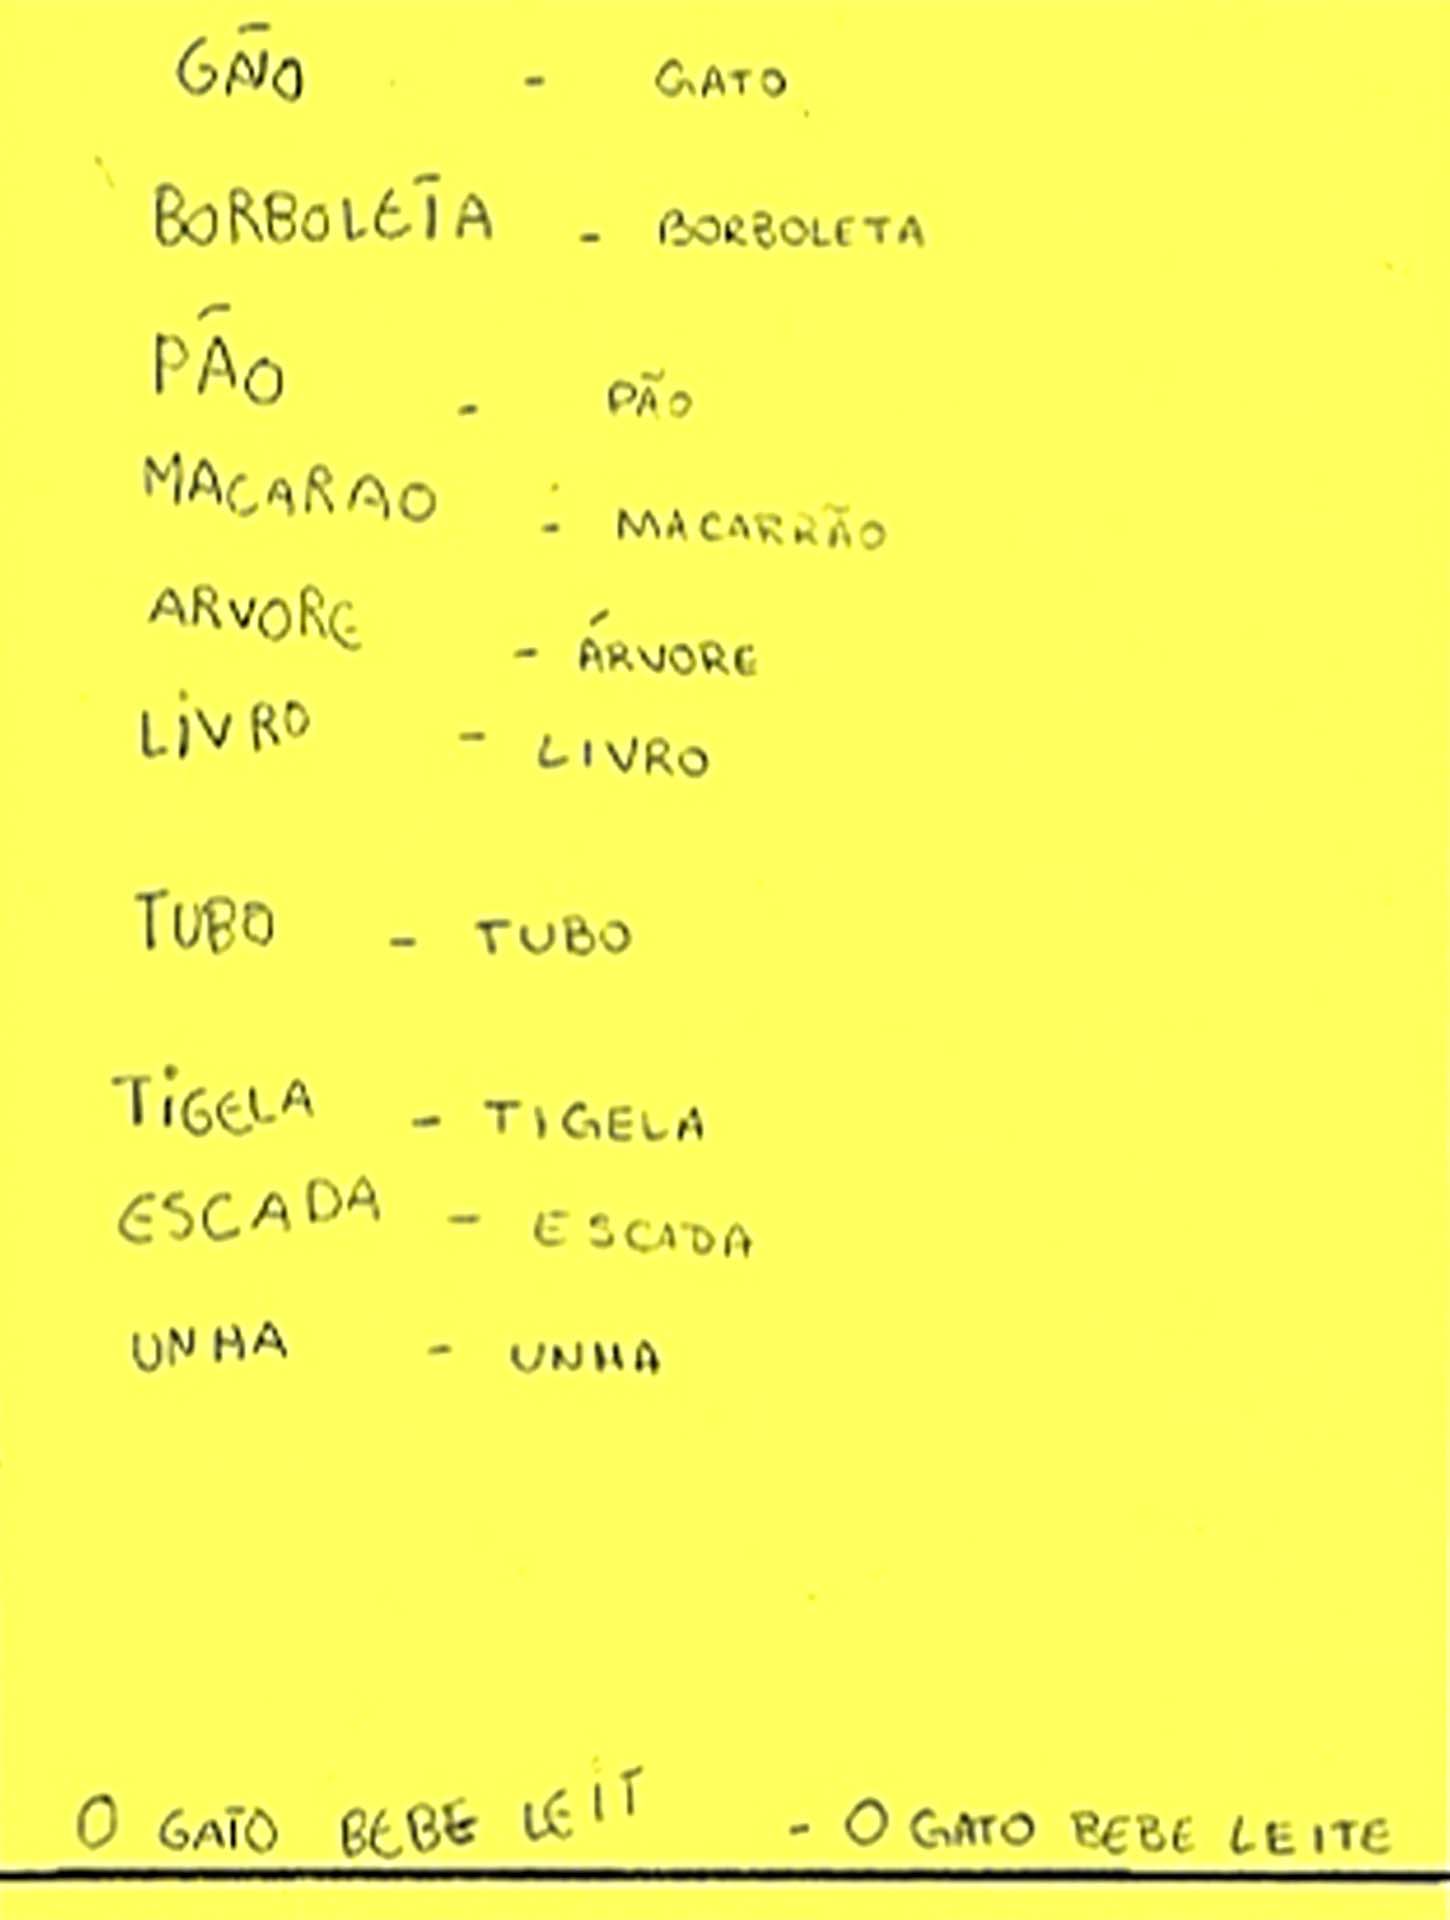 GÃNO - GATO
BORBOLETA - BORBOLETA
PÃO - PÃO
MACARAO - MACARRÃO
ARVORE - ÁRVORE
LIVRO - LIVRO
TUBO - TUBO
TIGELA - TIGELA
ESCADA - ESCADA
UNHA - UNHA
O GATO BEBE LEIT - O GATO BEBE LEITE